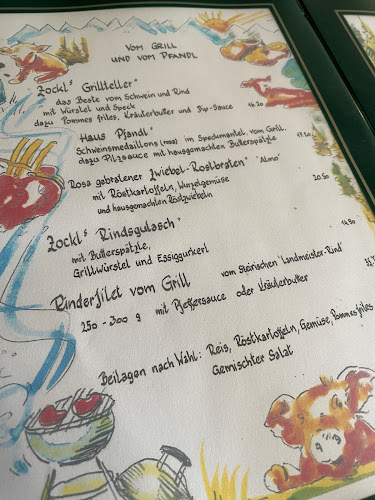 VOM GRILL
UND VOM PFANDL
Zockl's Grillteller"
das Beste vom Schwein und Rind
mit Würstel und Speck
dazu Pommes frites, Kräuterbutter und Dip-Sauce 16.20
Haus Pfandl"
Schweinsmedaillons (rosa) im Speckmantel vom Grill,
dazu Pilzsauce mit hausgemachten Butterspätzle 17.20
Rosa gebratener Zwiebel-Rostbraten" "Almo"
mit Röstkartoffeln, Wurzelgemüse
und hausgemachten Röstzwiebeln 20.50
Zockl's Rindsgulasch"
mit Butterspätzle,
Grillwürstel und Essiggurkerl 14.50
Rinderfilet vom Grill vom steirischen 'Landmeister-Rind'
250 - 300 g mit Pfeffersauce oder Kräuterbutter
Beilagen nach Wahl: Reis, Röstkartoffeln, Gemüse, Pommes frites
Gemischter Salat